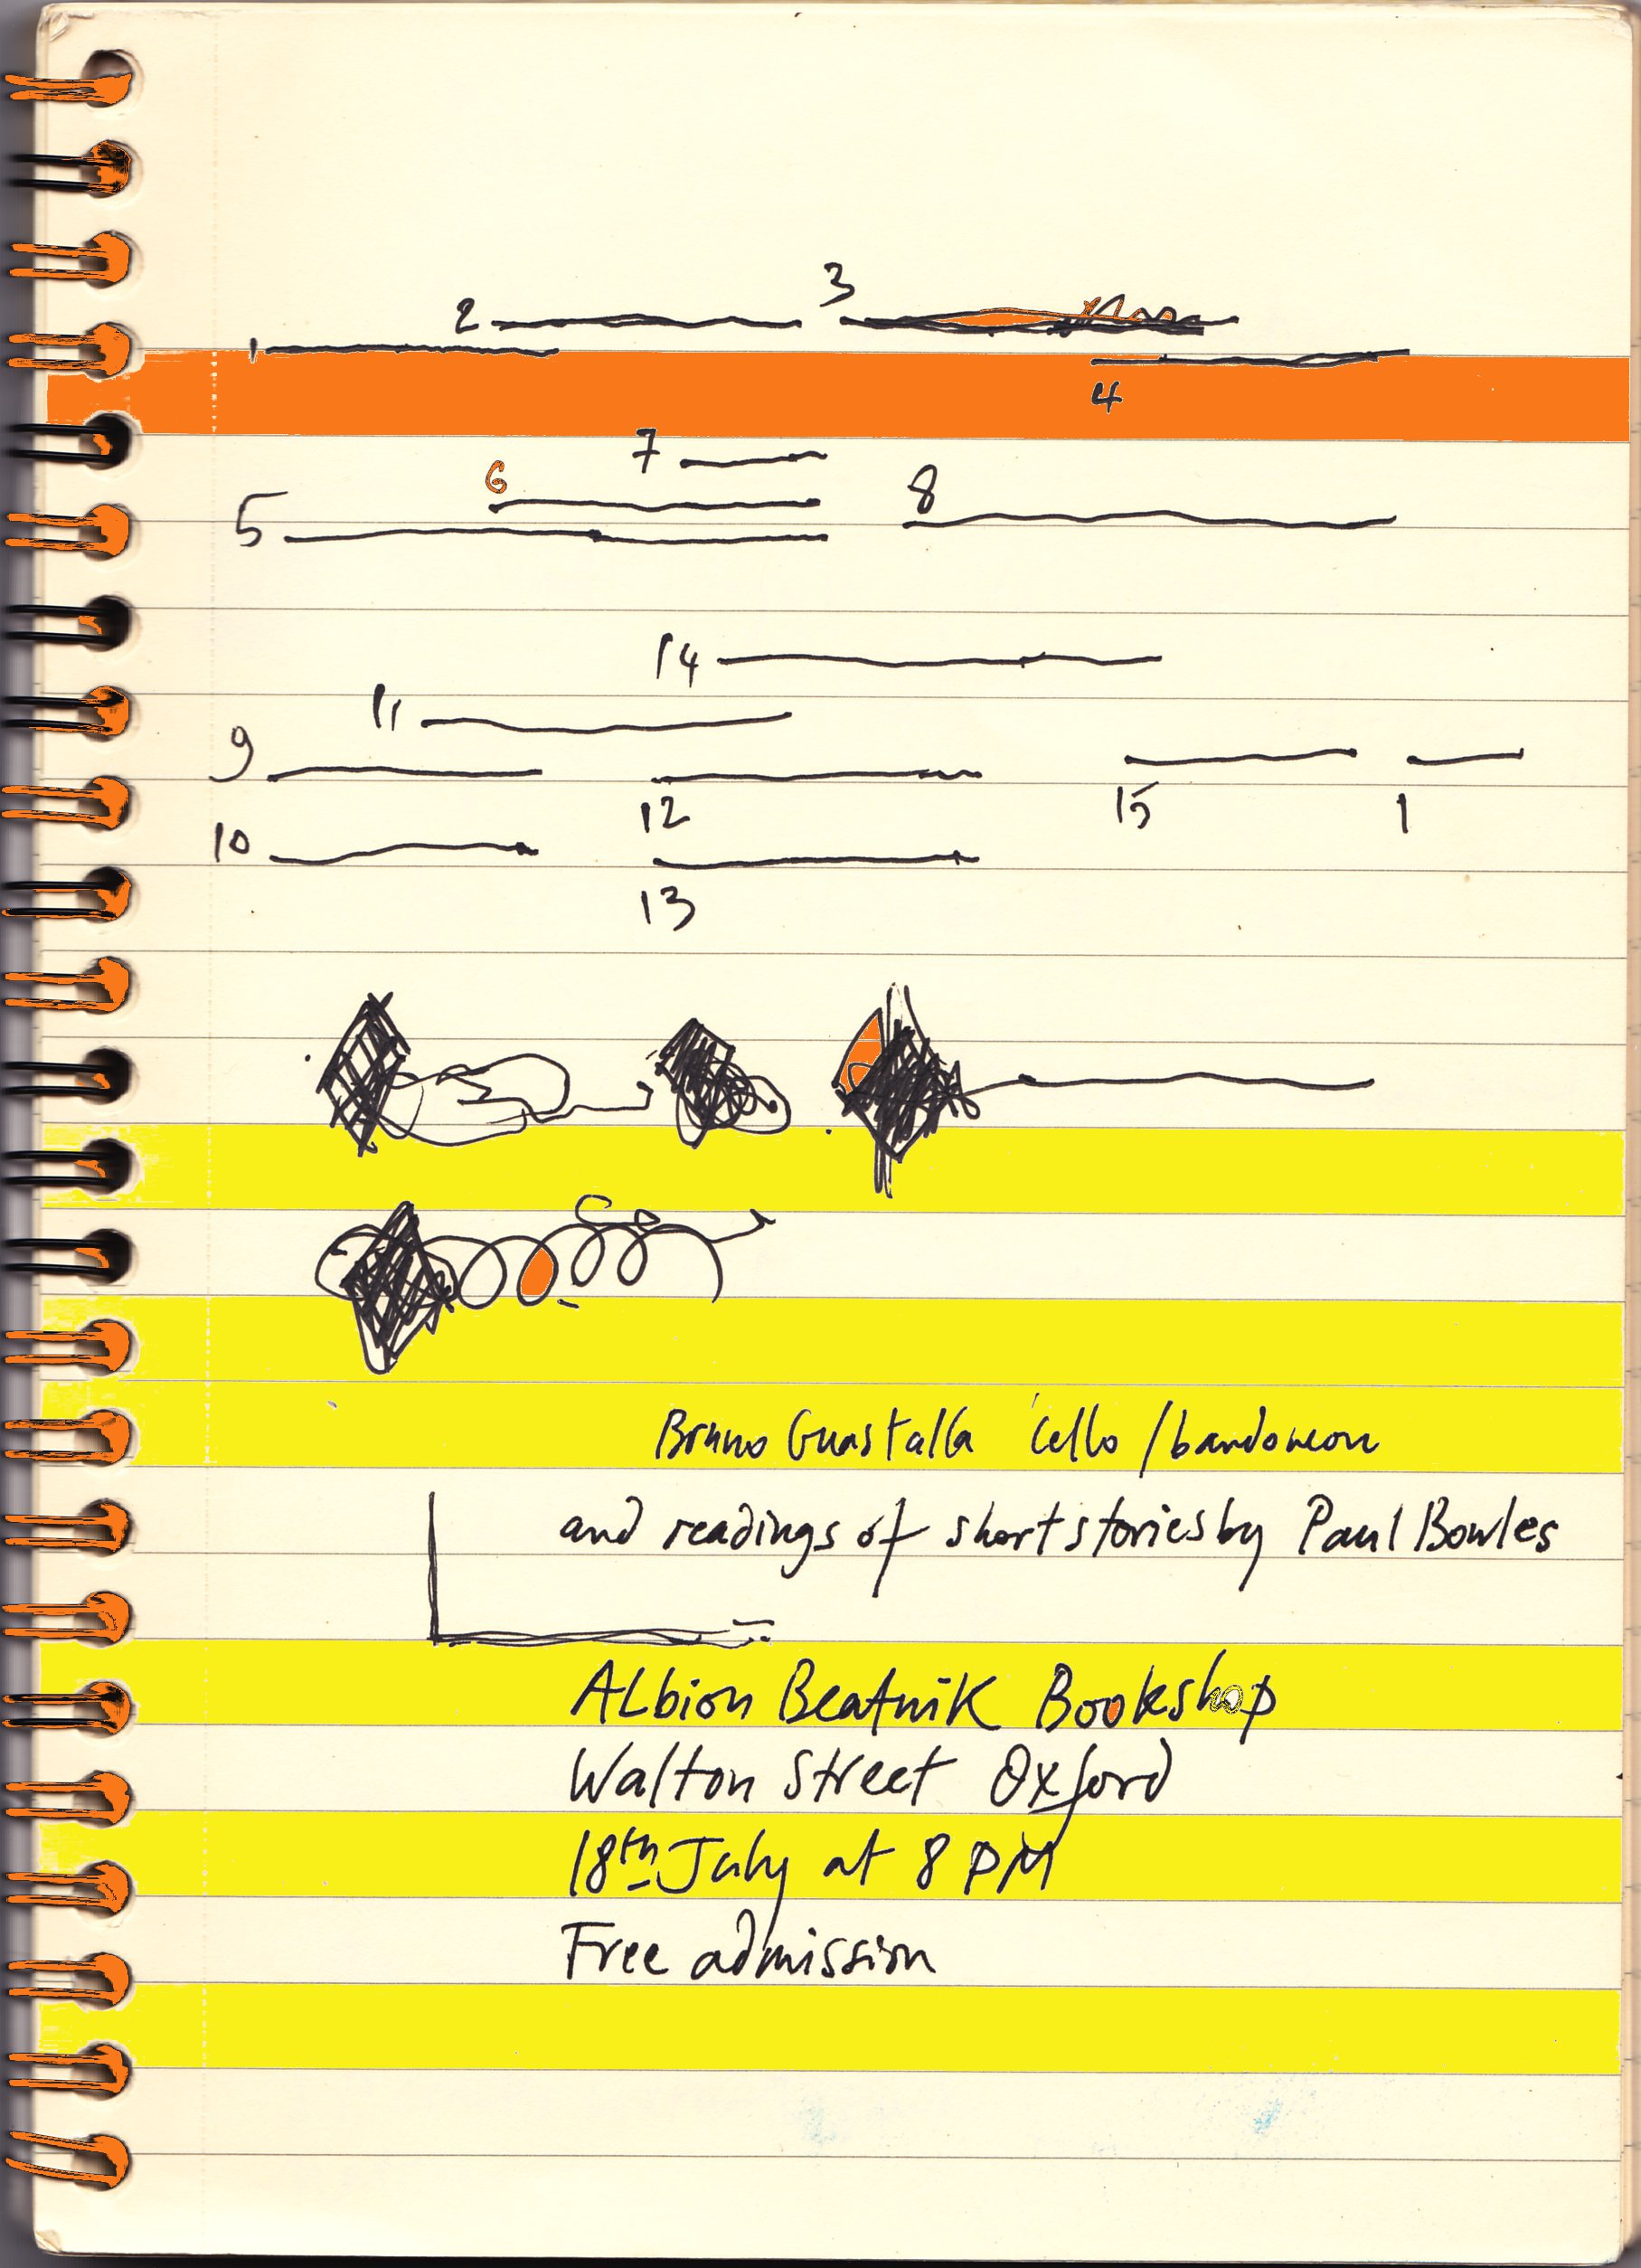 3
2
1
4
7
6
8
5
14
11
9
12
15
1
10
13
Bruno Guastalla 'cello / bandoneon
and readings of short stories by Paul Bowles
ALbion Beatnik Bookshop
Walton Street Oxford
18th July at 8 PM
Free admission